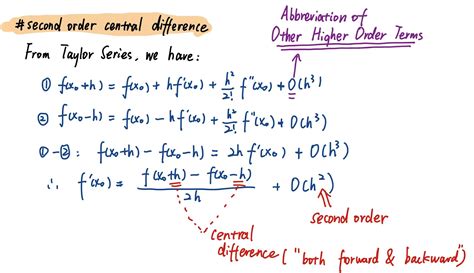 #second order central difference
Abbreviation of
Other Higher Order Terms
From Taylor Series, we have:
① f(x₀+h) = f(x₀) + hf'(x₀) + h²/2! f''(x₀) + O(h³)
② f(x₀-h) = f(x₀) - hf'(x₀) + h²/2! f''(x₀) + O(h³)
①-②: f(x₀+h) - f(x₀-h) = 2h f'(x₀) + O(h³)
∴ f'(x₀) = f(x₀+h) - f(x₀-h) / 2h + O(h²)
second order
central
difference ("both forward & backward")